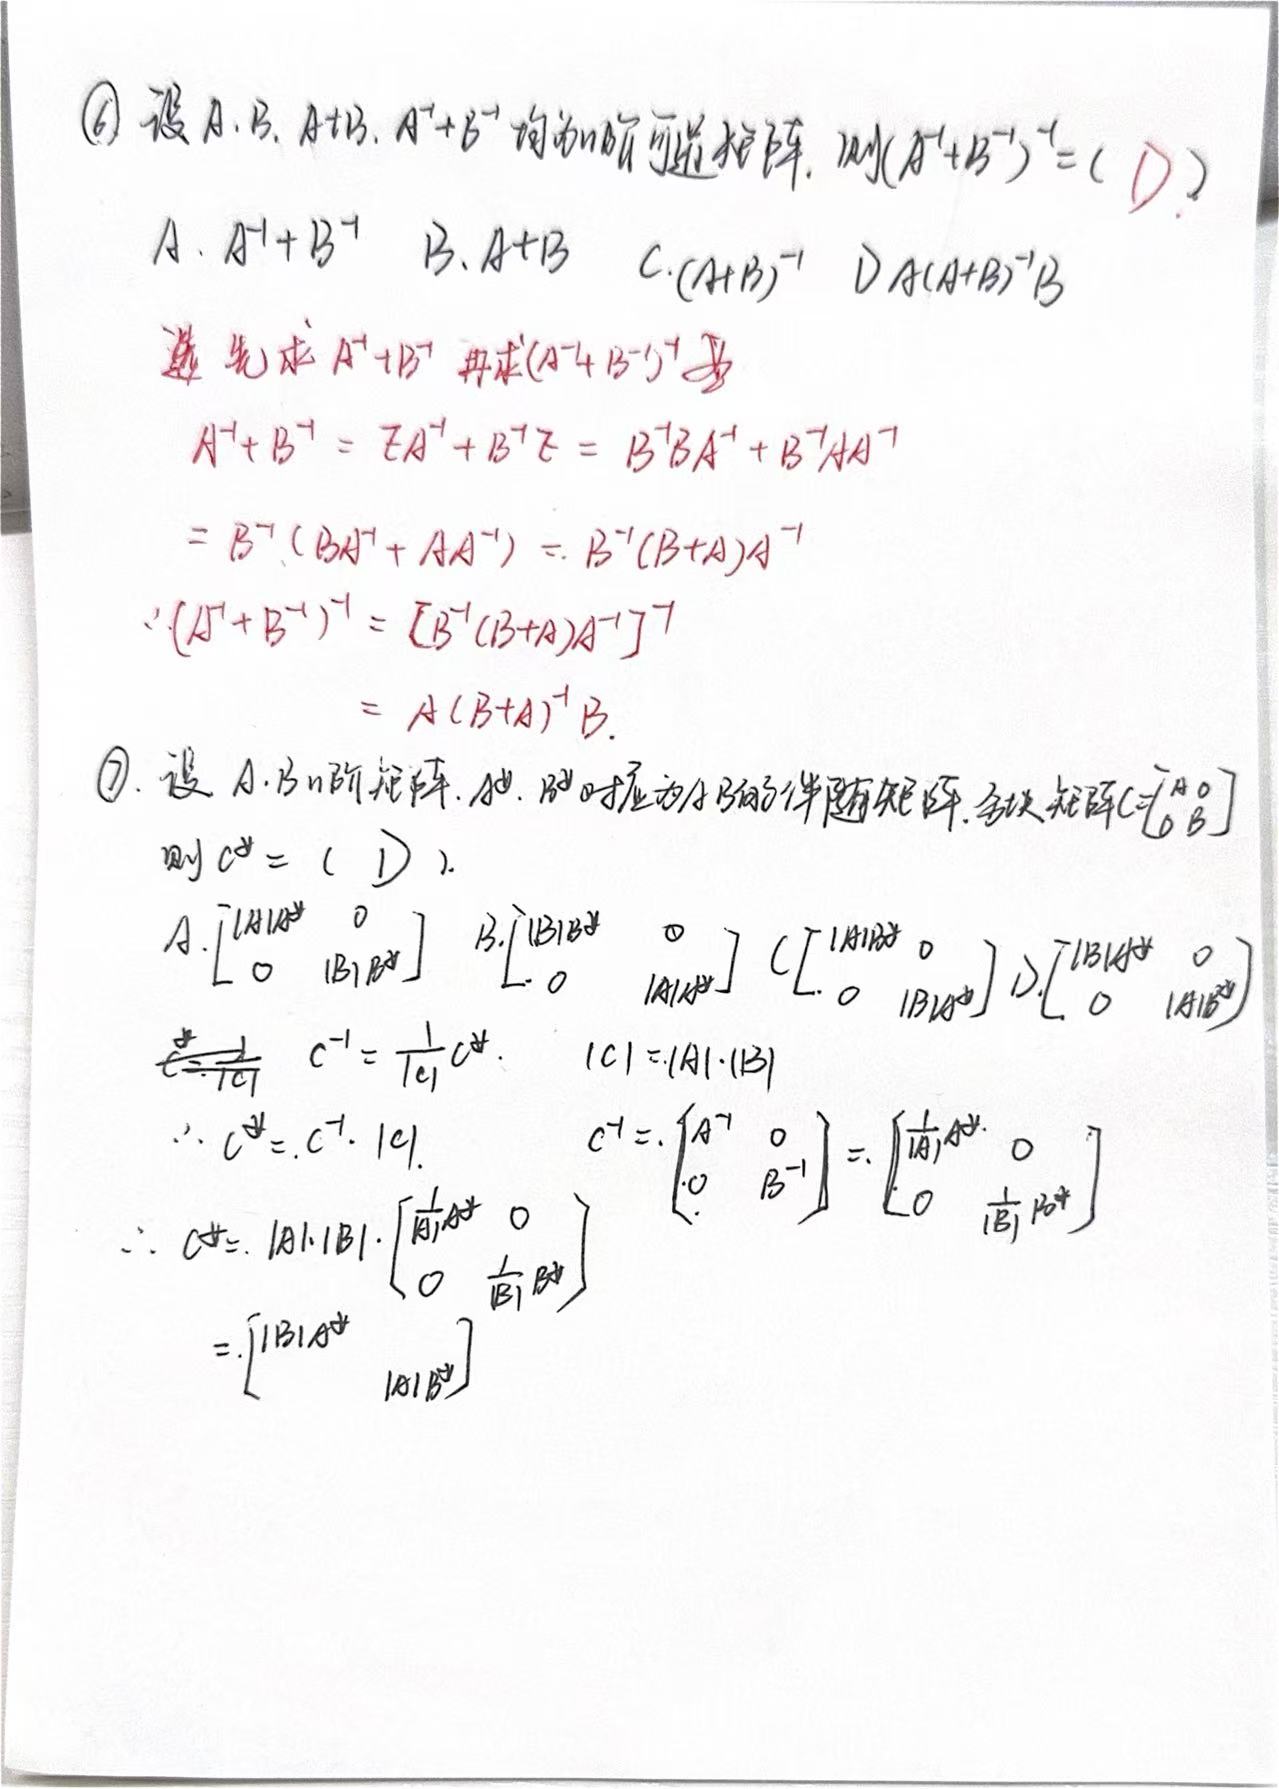 ⑥ 设 A.B. A+B. A⁻¹+B⁻¹ 均为n阶可逆矩阵. 则(A⁻¹+B⁻¹)⁻¹=( D )
A. A⁻¹+B⁻¹ B. A+B C.(A+B)⁻¹ D A(A+B)⁻¹B
先求 A⁻¹+B⁻¹ 再求(A⁻¹+B⁻¹)⁻¹
A⁻¹+B⁻¹ = EA⁻¹+B⁻¹E = B⁻¹BA⁻¹+B⁻¹AA⁻¹
= B⁻¹(BA⁻¹+AA⁻¹) = B⁻¹(B+A)A⁻¹
∴(A⁻¹+B⁻¹)⁻¹ = [B⁻¹(B+A)A⁻¹]⁻¹
= A(B+A)⁻¹B.
⑦. 设 A.B n阶矩阵. A*. B*对应为A B的伴随矩阵. 分块矩阵C=[A 0; 0 B]
则C* = ( D ).
A.[|A|A* 0; 0 |B|B*] B.[|B|B* 0; 0 |A|A*] C[|A|B* 0; 0 |B|A*] D.[|B|A* 0; 0 |A|B*]
C⁻¹ = 1/|C| C*. |C| = |A|·|B|
∴ C* = C⁻¹·|C|. C⁻¹ = [A⁻¹ 0; 0 B⁻¹] = [1/|A| A* 0; 0 1/|B| B*]
∴ C* = |A|·|B|·[1/|A| A* 0; 0 1/|B| B*]
= [|B|A* |A|B*]